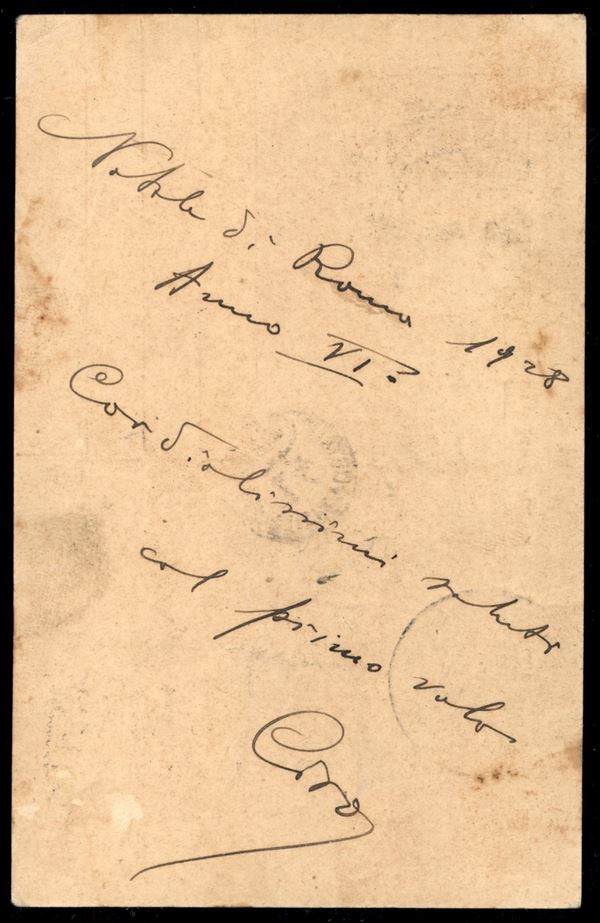 Natale di Roma 1928
Anno VI°
Cordialissimi saluti
col primo volo